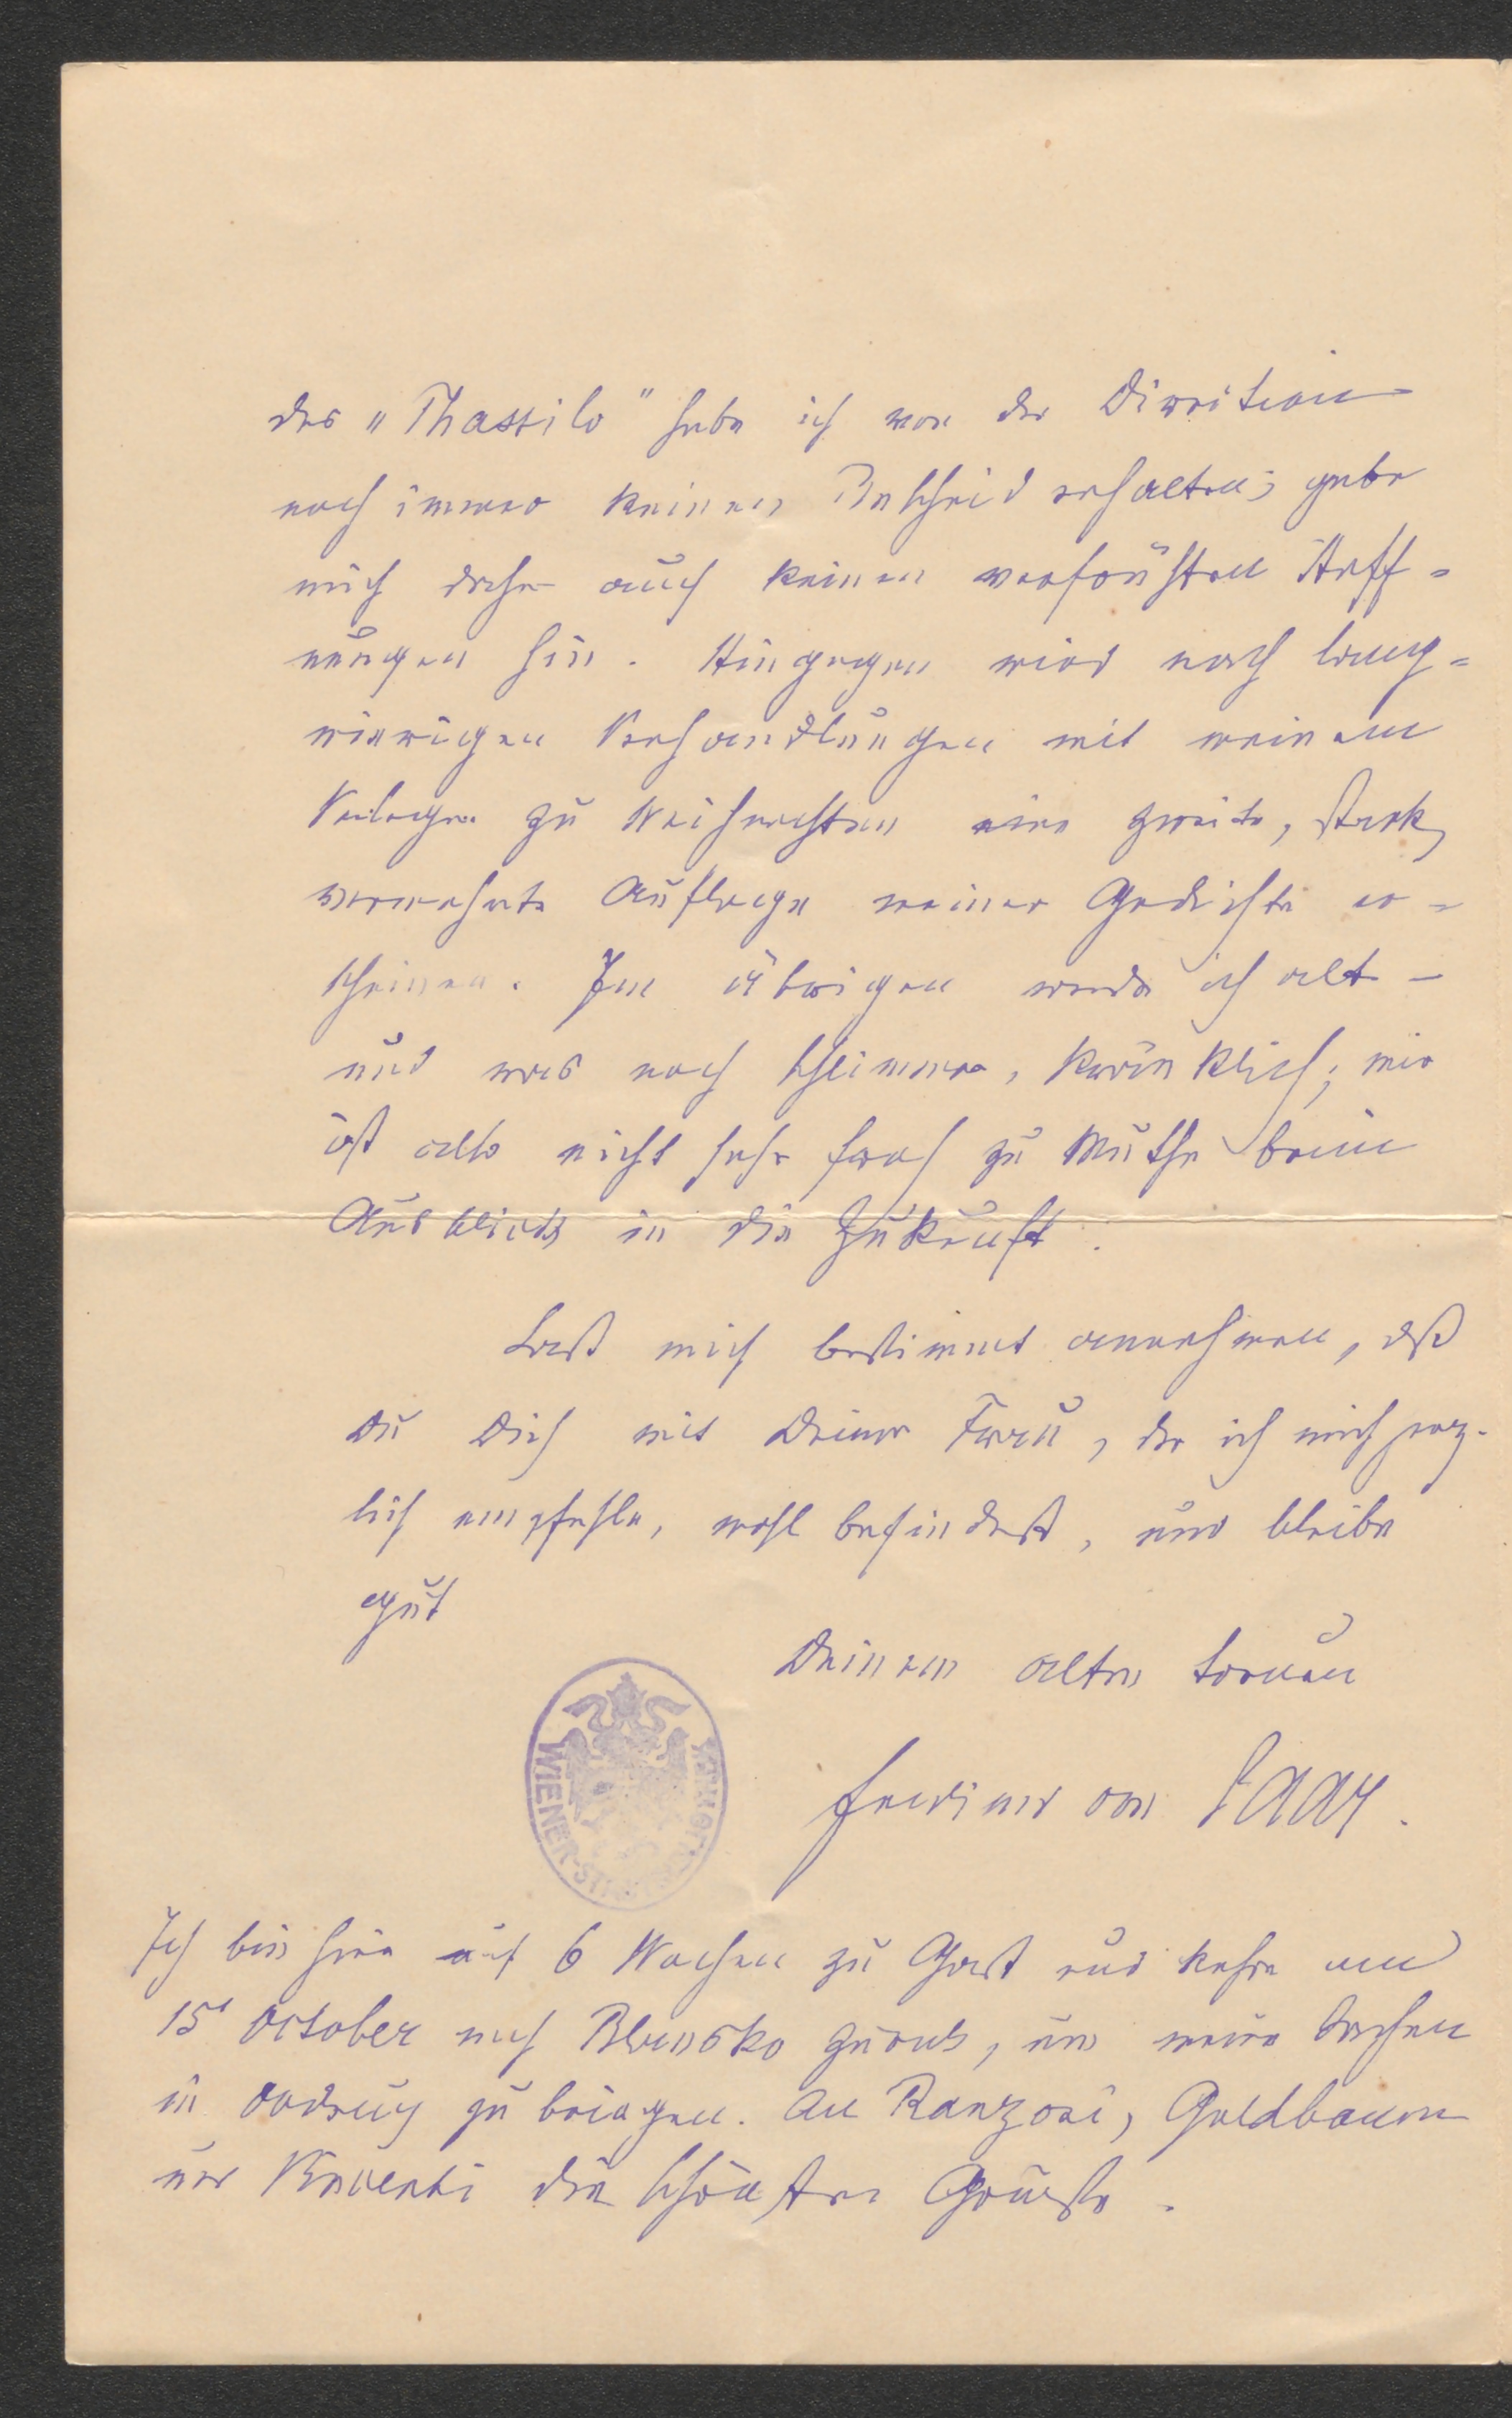 des „Thassilo“ habe ich von der Direction
noch immer keinen Bescheid erhalten; gebe
mich daher auch keinen verfrühten Hoff-
nungen hin. Hingegen wird nach lang-
wierigen Verhandlungen mit meinem
Verleger zu Weihnachten eine zweite, stark
vermehrte Auflage meiner Gedichte er-
scheinen. Im Übrigen werde ich alt –
und was noch schlimmer, kränklich; mir
ist also nicht sehr froh zu Muthe beim
Ausblick in die Zukunft.
Laß mich bestimmt annehmen, daß
Du Dich mit Deiner Frau, der ich mich herz-
lich empfehle, wohl befindest, und bleibe
gut
Deinem alten treuen
Ferdinand von Saar.
WIENER-ST
Ich bin hier auf 6 Wochen zu Gast und kehre am
15t October nach Blansko zurück, um meine Sachen
in Ordnung zu bringen. An Ranzoni, Goldbaum
und die schönsten Grüße.